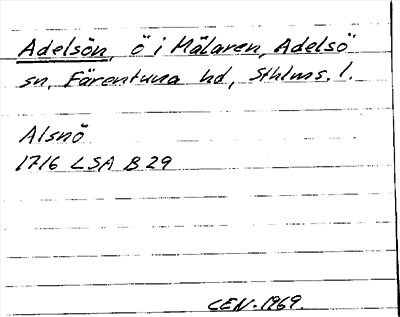 Adelsön, ö i Mälaren, Adelsö
sn, Färentuna hd, Sthlms. l.
Alsnö
1716 LSA B 29
CEN. 1969.